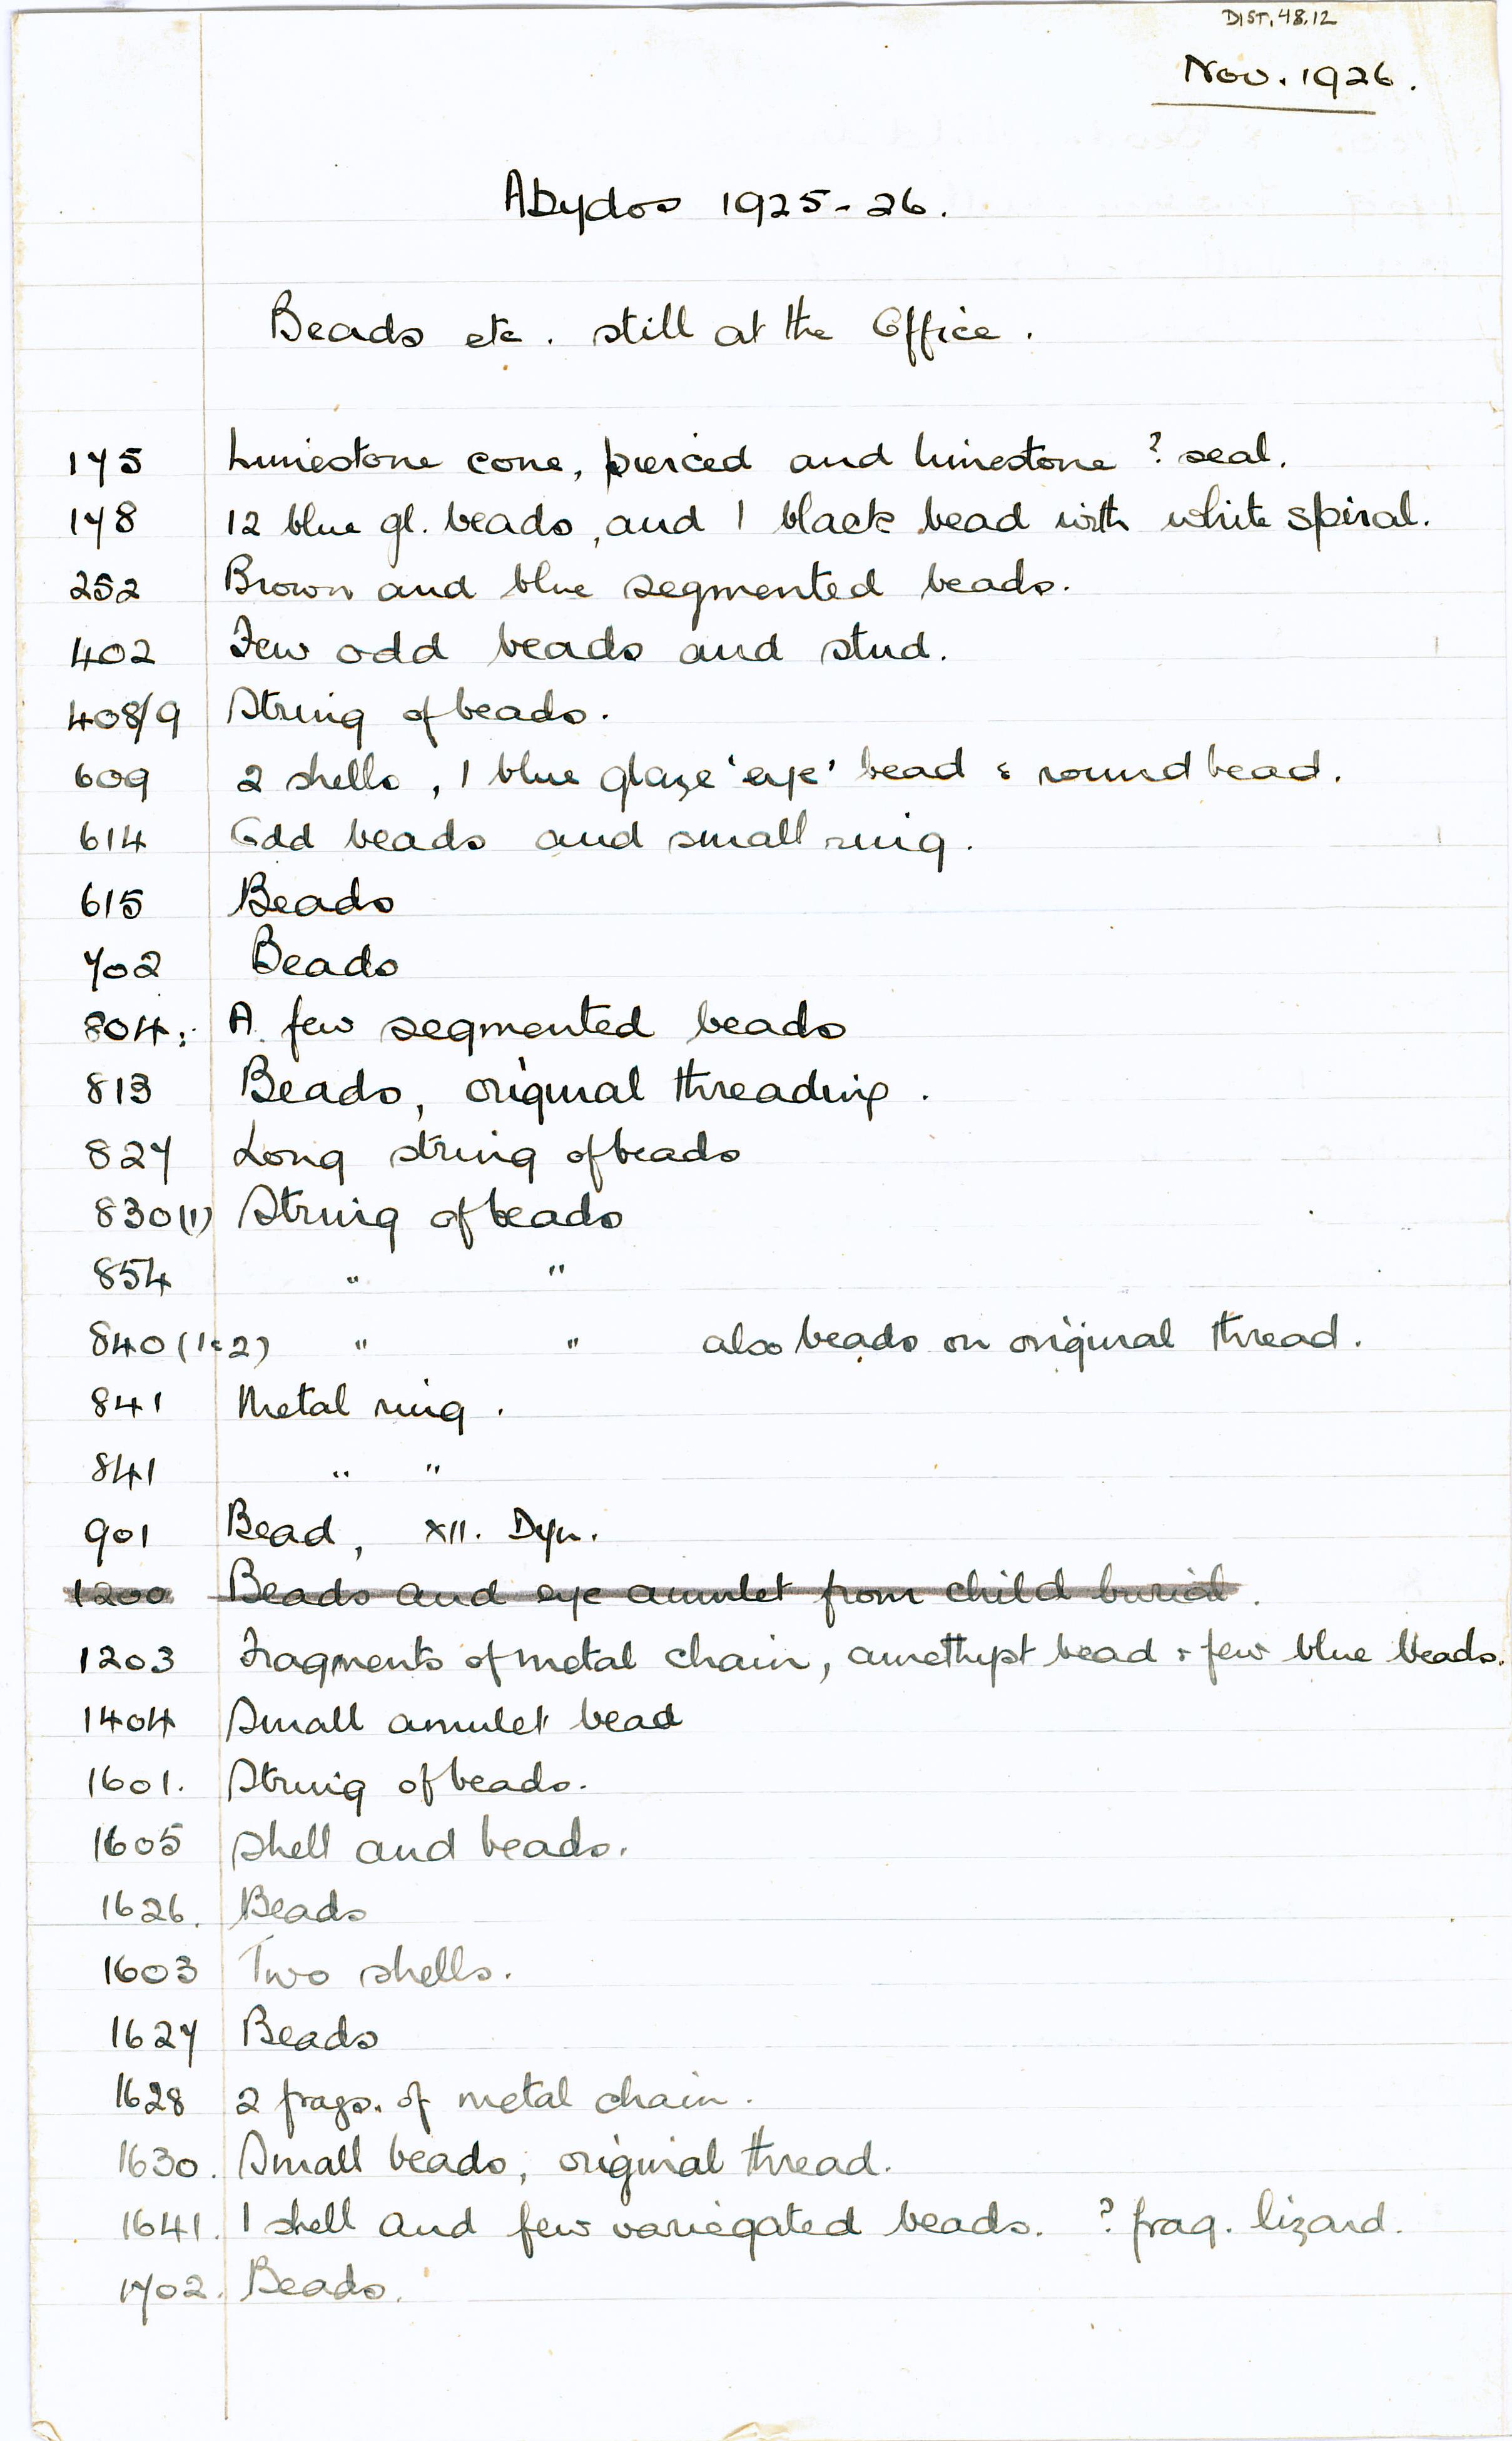 DIST. 48.12
Nov. 1926.
Abydos 1925-26.
Beads etc. still at the Office.
175 Limestone cone, pierced and limestone ? seal.
178 12 blue gl. beads, and 1 black bead with white spiral.
252 Brown and blue segmented beads.
402 Few odd beads and stud.
408/9 String of beads.
609 2 shells, 1 blue glaze 'eye' bead & round bead.
614 Odd beads and small ring.
615 Beads
702 Beads
804: A few segmented beads
813 Beads, original threading.
827 Long string of beads
830(1) String of beads
854 " "
840 (1&2) " " also beads on original thread.
841 Metal ring.
841 " "
901 Bead, XII. Dyn.
1200 Beads and eye amulet from child burial.
1203 Fragments of metal chain, amethyst bead & few blue beads.
1404 Small amulet bead
1601. String of beads.
1605 Shell and beads.
1626. Beads
1603 Two shells.
1627 Beads
1628 2 frags. of metal chain.
1630. Small beads, original thread.
1641. 1 shell and few variegated beads. ? frag. lizard.
1702. Beads.